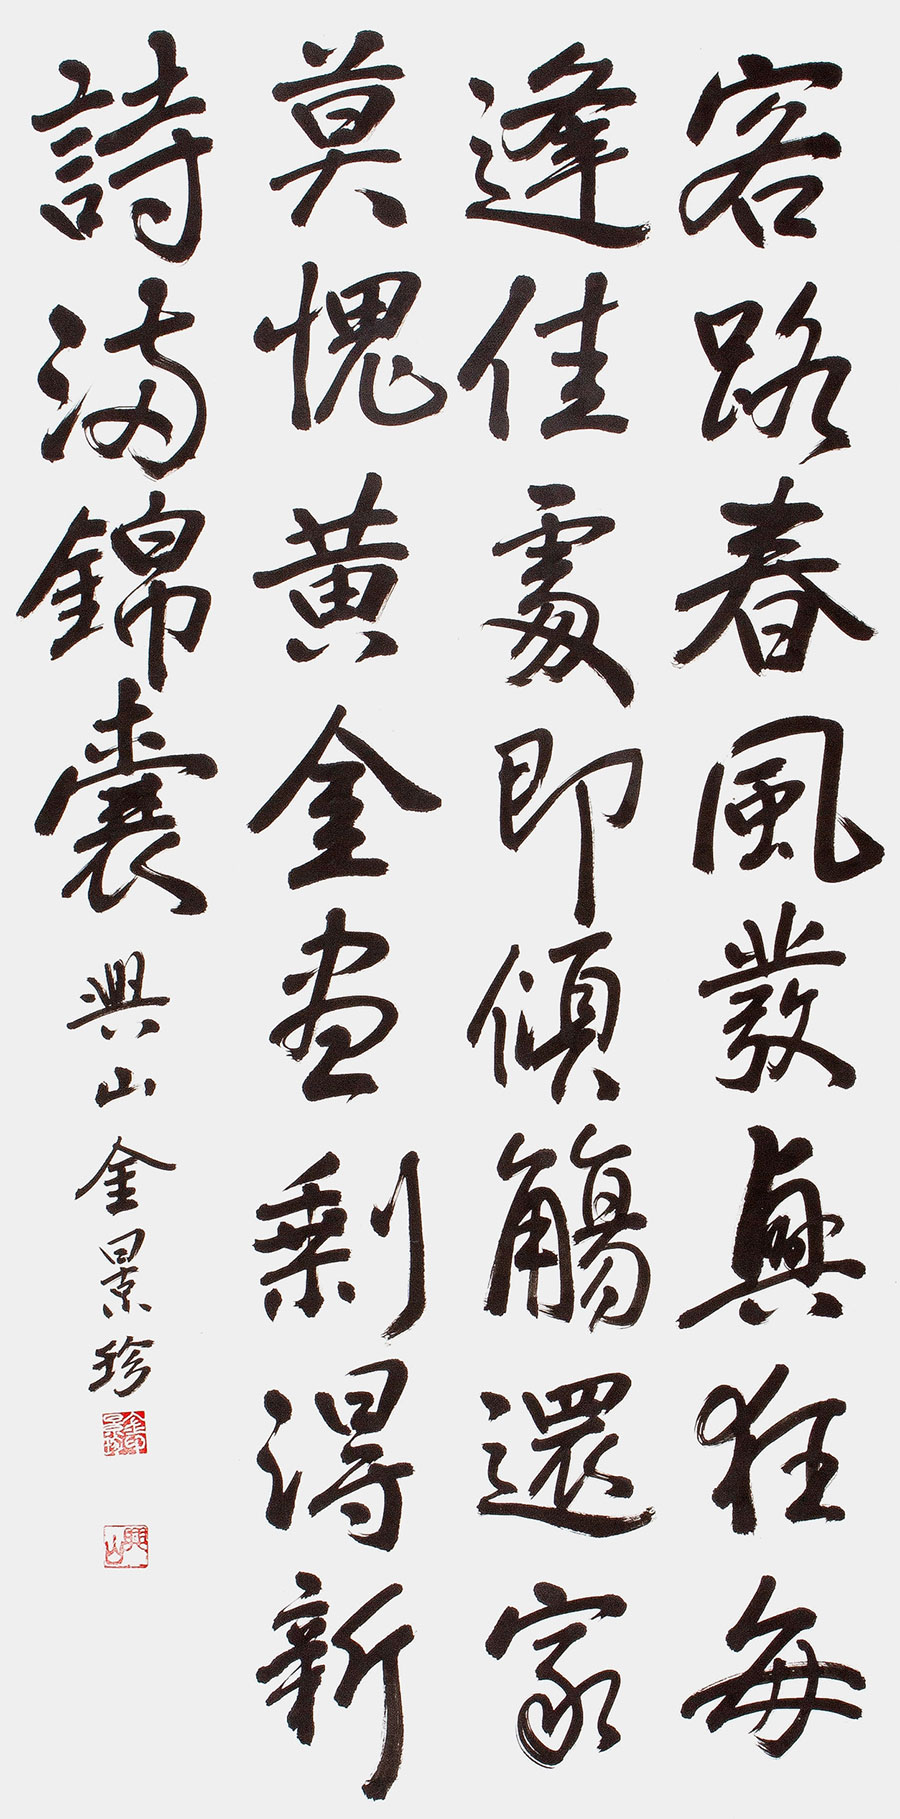 客路春風發興狂每
逢佳處即傾觴還家
莫愧黃金盡剩得新
詩滿錦囊 興山 金景珍
金景珍
興山